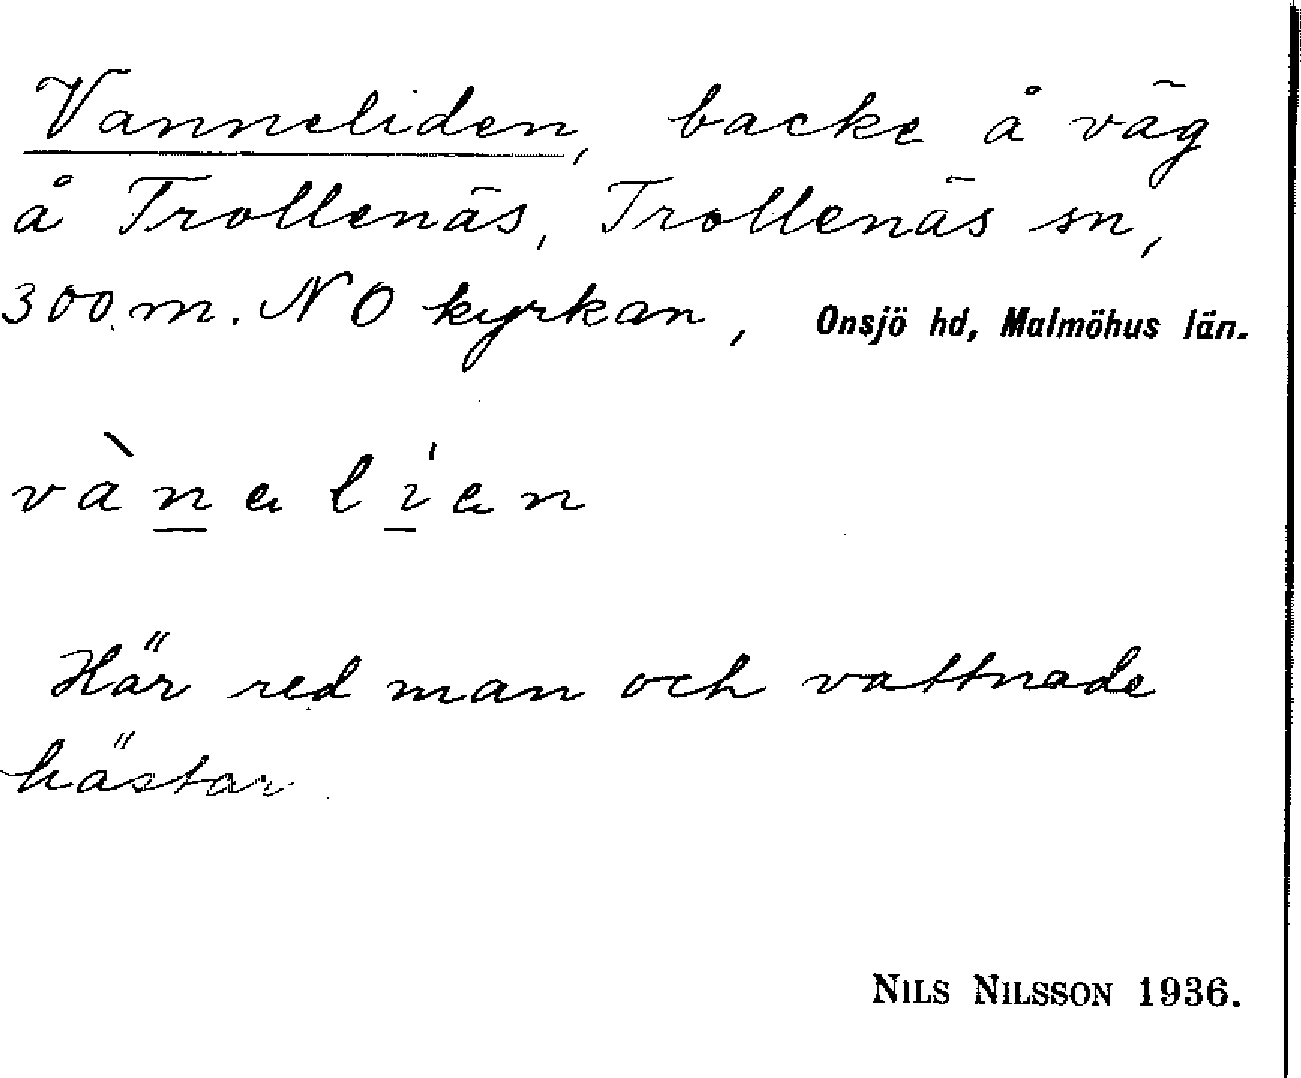 Vanneliden, backe å väg
å Trollenäs, Trollenäs sn,
300 m. NO kyrkan, Onsjö hd, Malmöhus län.
vànalían
Här red man och vattnade
hästar
NILS NILSSON 1936.